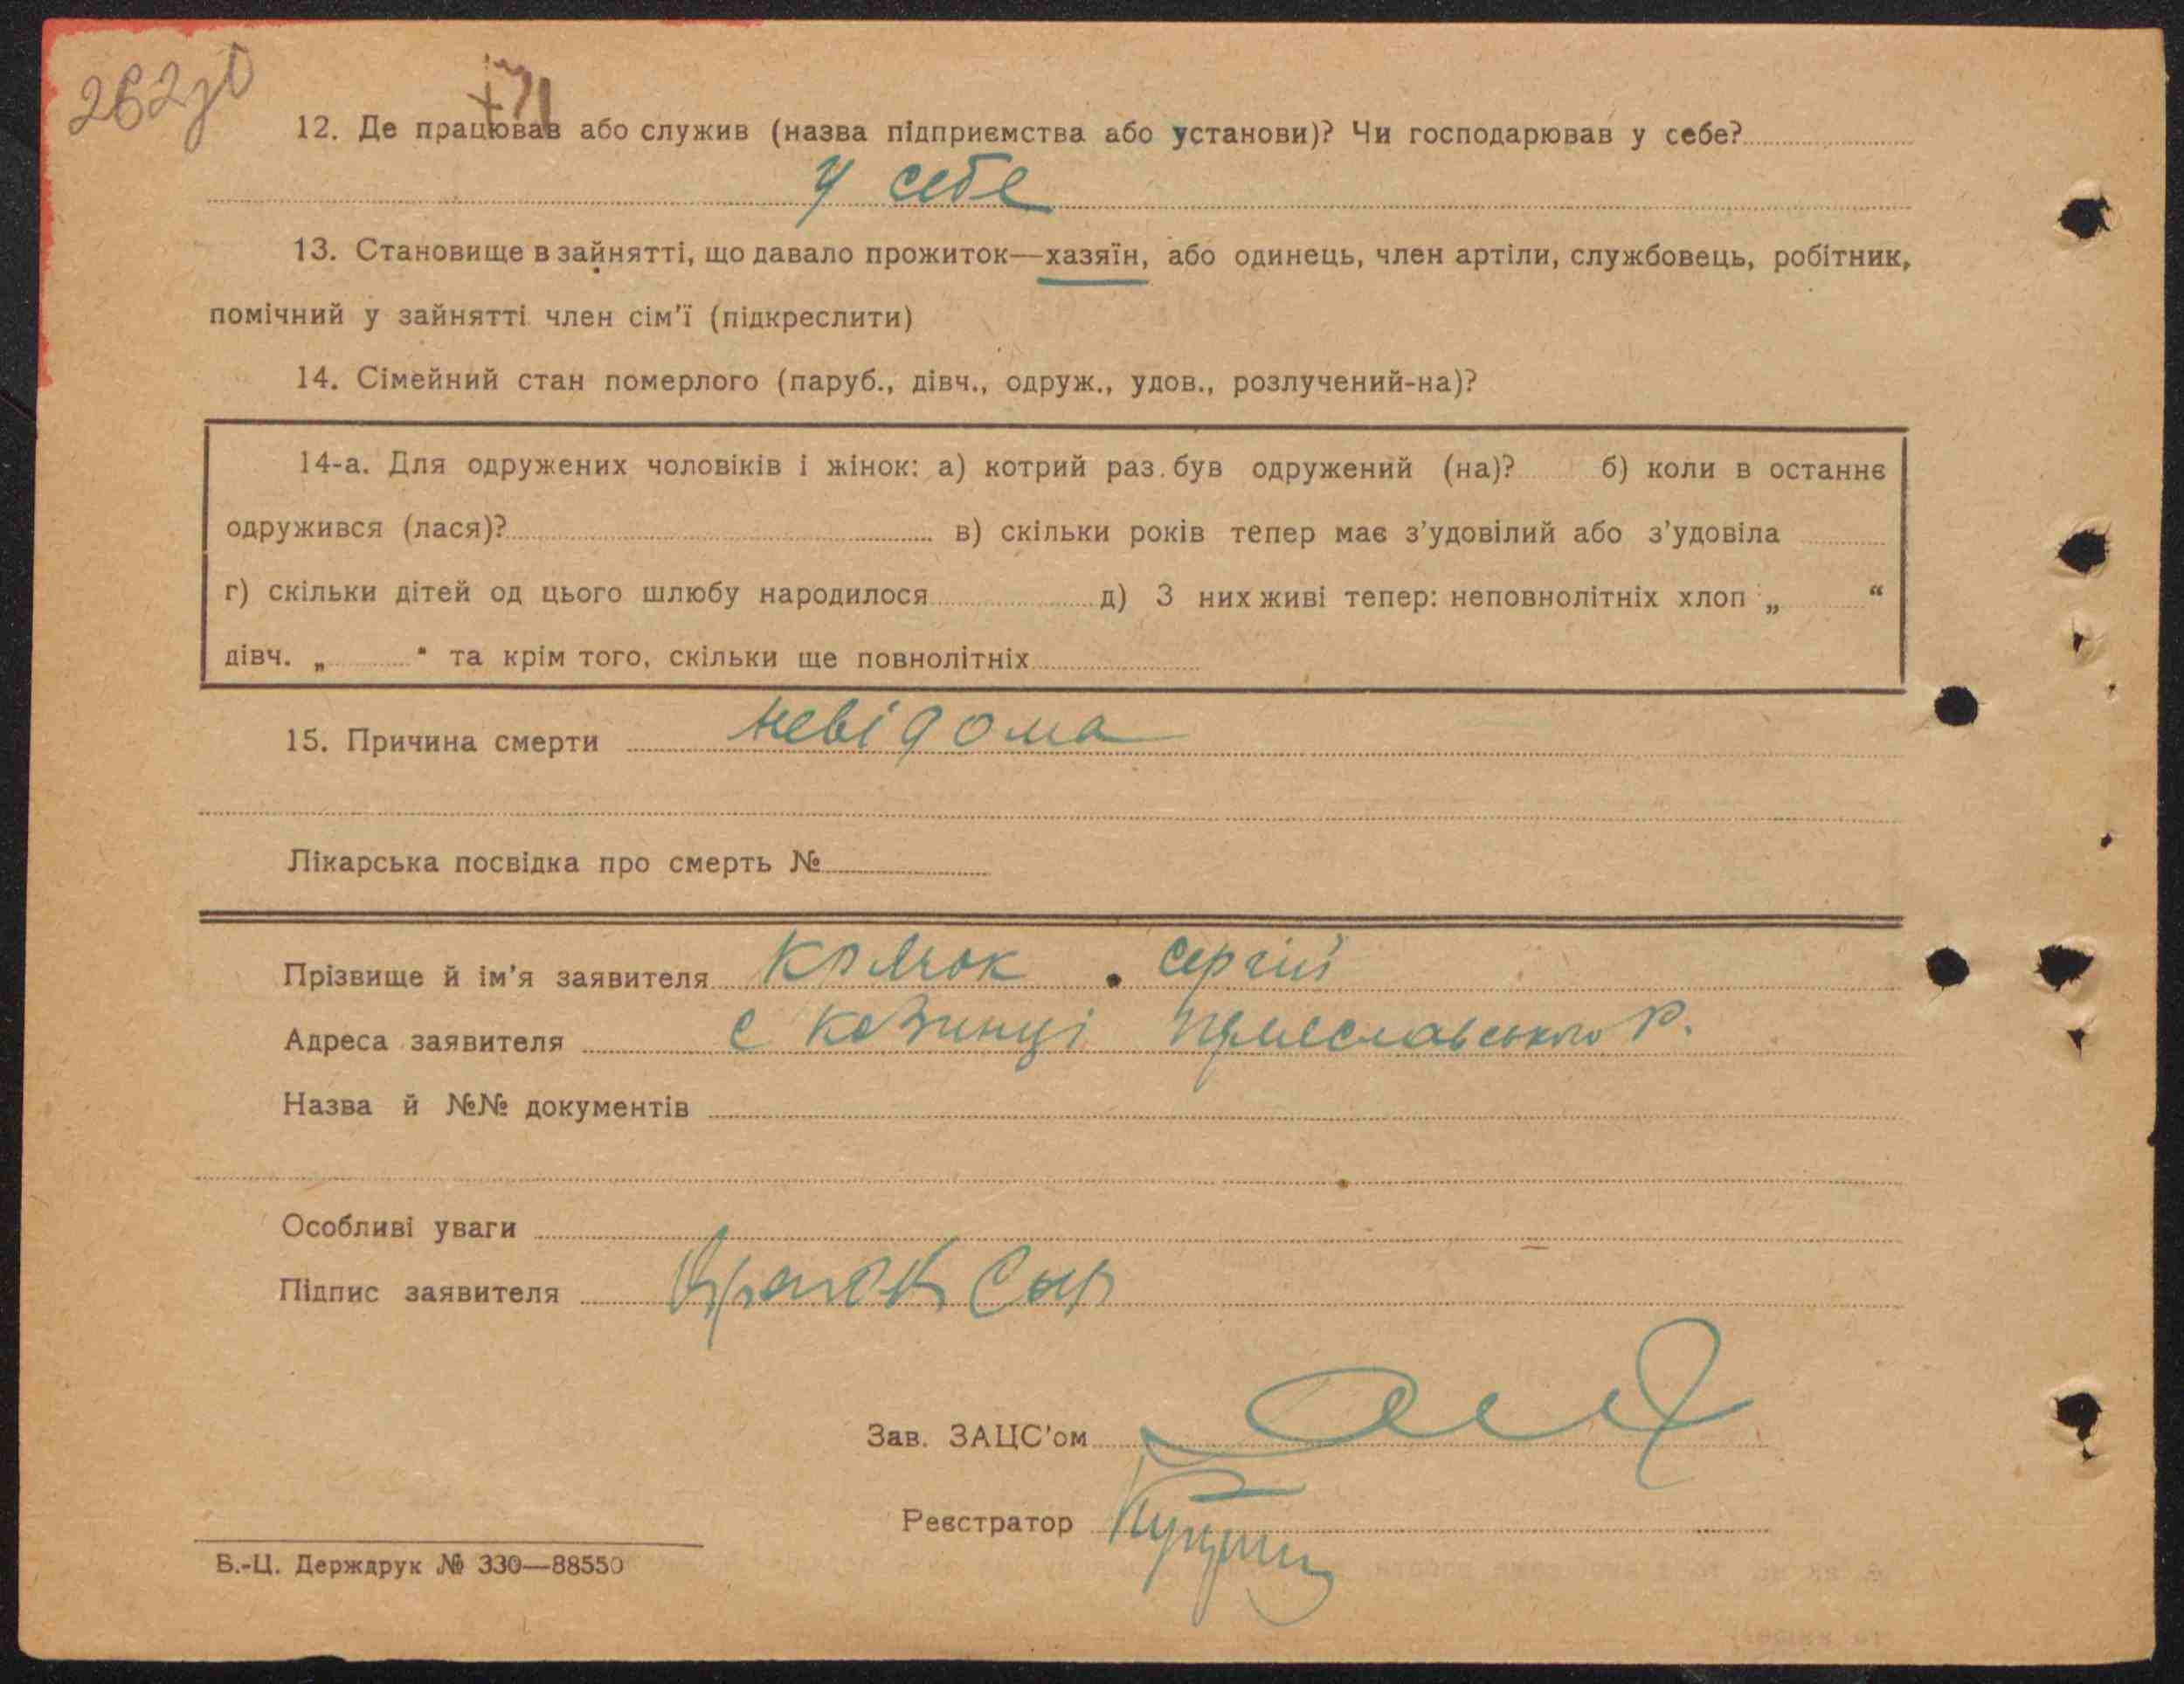 262зв
12. Де працював або служив (назва підприємства або установи)? Чи господарював у себе?
у себе
13. Становище в зайнятті, що давало прожиток—хазяїн, або одинець, член артіли, службовець, робітник,
помічний у зайнятті член сім'ї (підкреслити)
14. Сімейний стан померлого (паруб., дівч., одруж., удов., розлучений-на)?
14-а. Для одружених чоловіків і жінок: а) котрий раз був одружений (на)? б) коли в останнє
одружився (лася)? в) скільки років тепер має з'удовілий або з'удовіла
г) скільки дітей од цього шлюбу народилося д) З них живі тепер: неповнолітніх хлоп „ “
дівч. „ “ та крім того, скільки ще повнолітніх
15. Причина смерти невідома
Лікарська посвідка про смерть №
Прізвище й ім'я заявителя Сергій
Адреса заявителя с Ковинці р.
Назва й №№ документів
Особливі уваги
Підпис заявителя
Зав. ЗАЦС'ом
Реєстратор
Б.-Ц. Держдрук № 330—88550